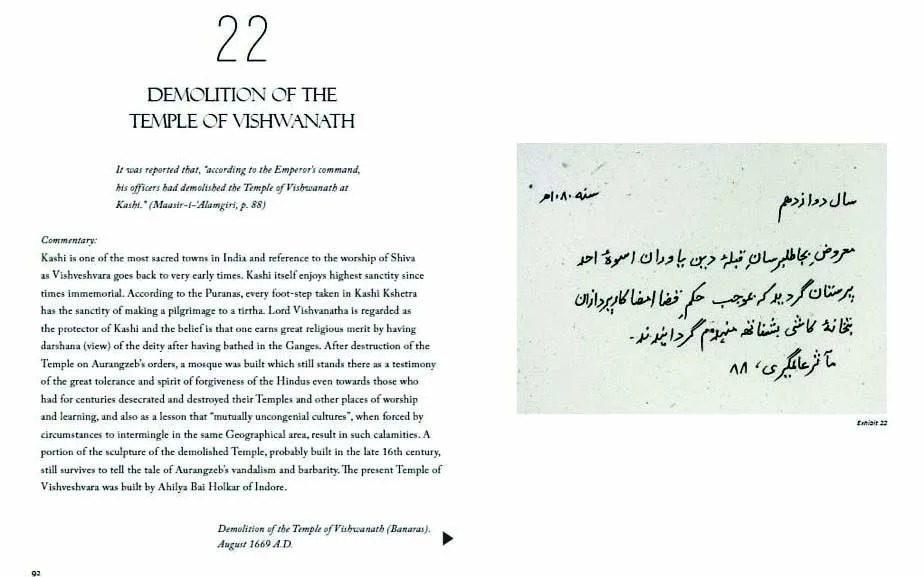 22
DEMOLITION OF THE
TEMPLE OF VISHWANATH
It was reported that, "according to the Emperor's command,
his officers had demolished the Temple of Vishwanath at
Kashi." (Maasir-i-'Alamgiri, p. 88)
Commentary:
Kashi is one of the most sacred towns in India and reference to the worship of Shiva
as Vishveshvara goes back to very early times. Kashi itself enjoys highest sanctity since
times immemorial. According to the Puranas, every foot-step taken in Kashi Kshetra
has the sanctity of making a pilgrimage to a tirtha. Lord Vishvanatha is regarded as
the protector of Kashi and the belief is that one earns great religious merit by having
darshana (view) of the deity after having bathed in the Ganges. After destruction of the
Temple on Aurangzeb's orders, a mosque was built which still stands there as a testimony
of the great tolerance and spirit of forgiveness of the Hindus even towards those who
had for centuries desecrated and destroyed their Temples and other places of worship
and learning, and also as a lesson that "mutually uncongenial cultures", when forced by
circumstances to intermingle in the same Geographical area, result in such calamities. A
portion of the sculpture of the demolished Temple, probably built in the late 16th century,
still survives to tell the tale of Aurangzeb's vandalism and barbarity. The present Temple of
Vishveshvara was built by Ahilya Bai Holkar of Indore.
Demolition of the Temple of Vishwanath (Banaras).
August 1669 A.D.
92
سال دوازدهم سنه ۱۰۸۰ هـ
معروض قبلهٔ دین یاوران اسوهٔ احد
پرستان گردید که بموجب حکم قضا امضا کارپردازان
بتخانهٔ کاشی بشناتهه منهدم گردانیدند.
مآثر عالمگیری، ۸۸
Exhibit 22